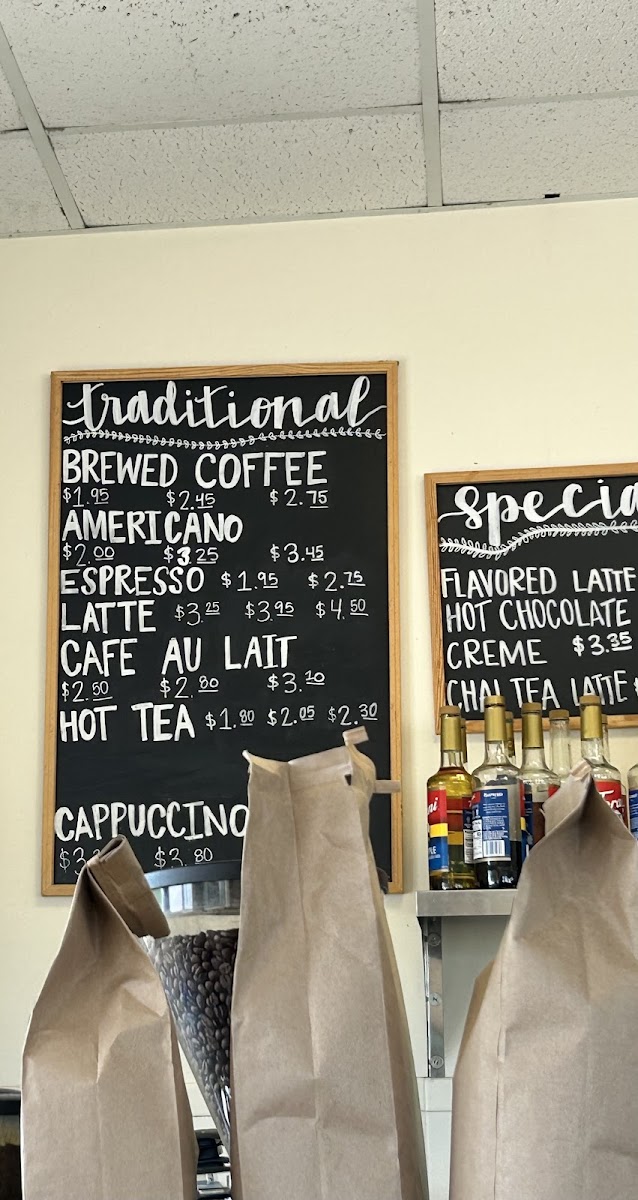 traditional
BREWED COFFEE
$1.95 $2.45 $2.75
AMERICANO
$2.00 $3.25 $3.45
ESPRESSO $1.95 $2.75
LATTE $3.25 $3.95 $4.50
CAFE AU LAIT
$2.50 $2.80 $3.10
HOT TEA $1.80 $2.05 $2.30
CAPPUCCINO
$3.80
specia
FLAVORED LATTE
HOT CHOCOLATE
CREME $3.35
CHAI TEA LATTE